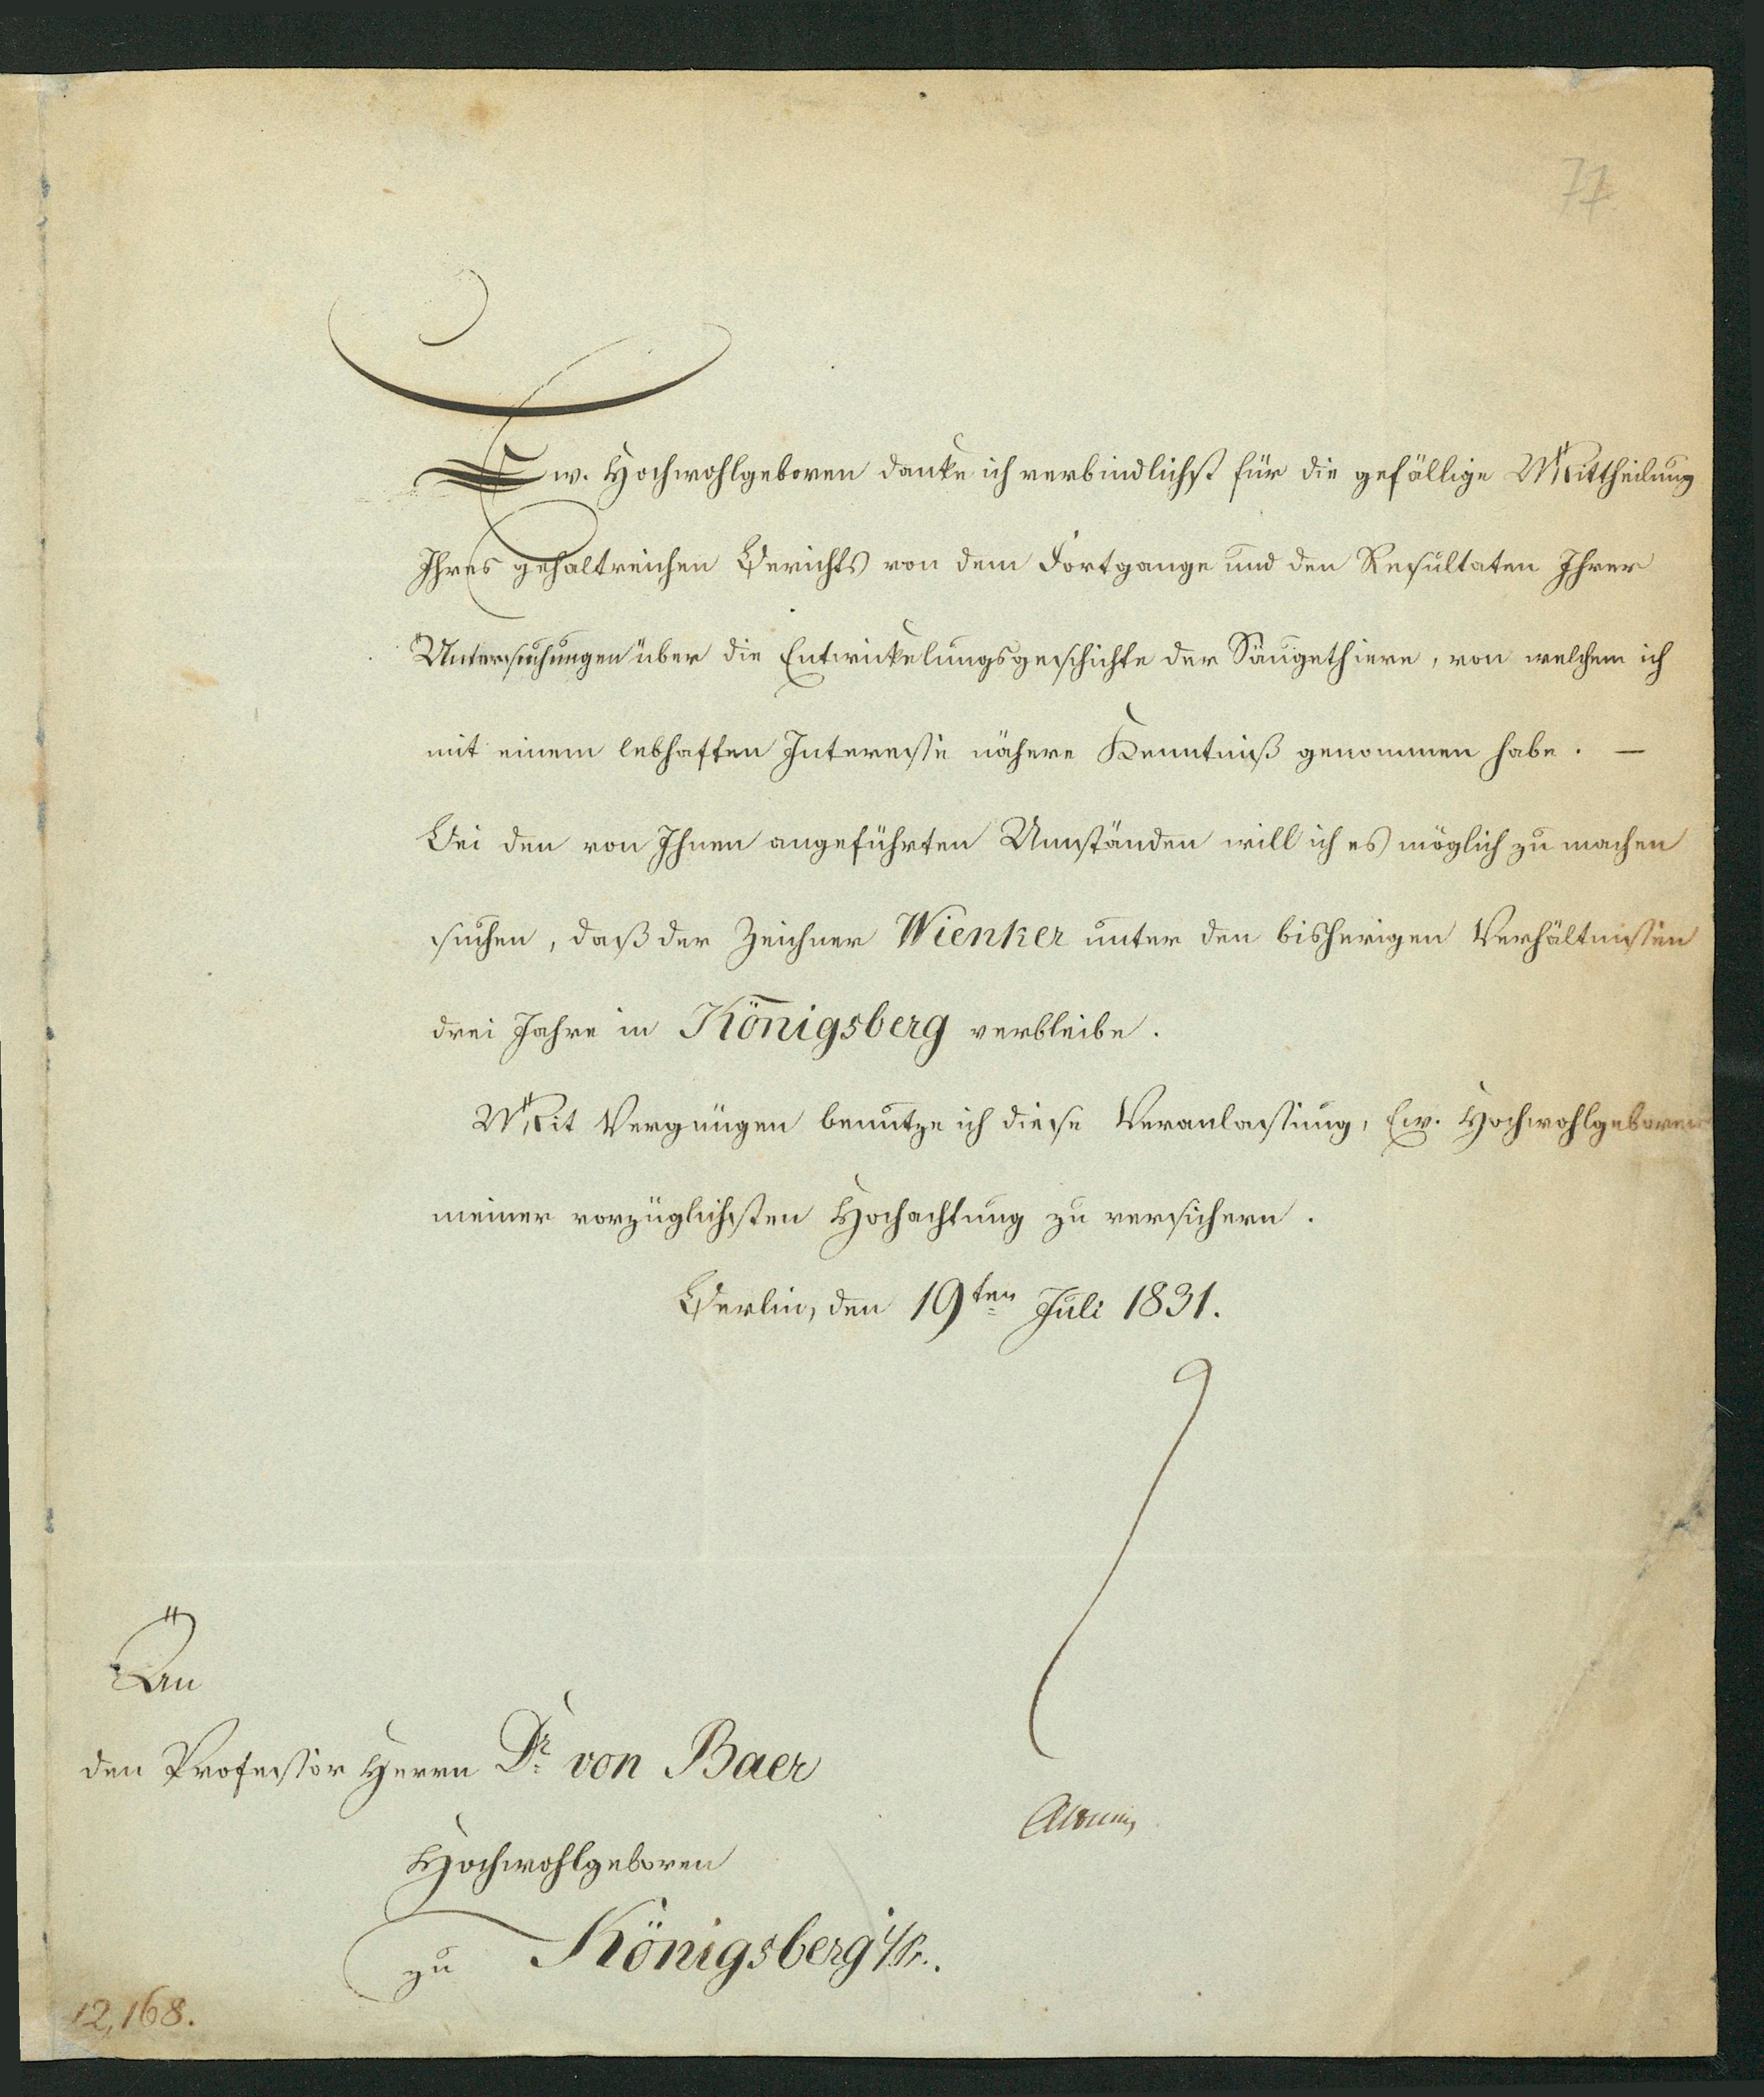 77
Ew. Hochwohlgeboren danke ich verbindlichst für die gefällige Mittheilung
Ihres gehaltreichen Berichts von dem Fortgange und den Resultaten Ihrer
Untersuchungen über die Entwickelungsgeschichte der Säugethiere, von welchem ich
mit einem lebhaften Interesse nähere Kenntniß genommen habe. —
Bei den von Ihnen angeführten Umständen will ich es möglich zu machen
suchen, daß der Zeichner Wienker unter den bisherigen Verhältnissen
drei Jahre in Königsberg verbleibe.
Mit Vergnügen benutze ich diese Veranlassung, Ew. Hochwohlgeboren
meiner vorzüglichsten Hochachtung zu versichern.
Berlin, den 19ten Juli 1831.
An
den Professor Herrn Dr. von Baer
Hochwohlgeboren
zu Königsberg i/Pr.
12,168.